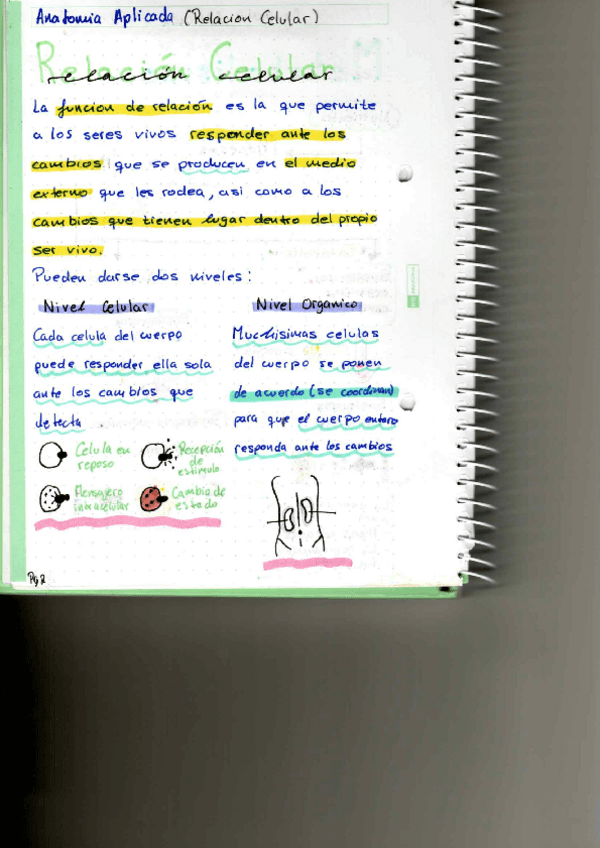 Anatomia Aplicada (Relacion Celular)
Relación Celular
relación celular
La funcion de relación es la que permite
a los seres vivos responder ante los
cambios que se producen en el medio
externo que les rodea, asi como a los
cambios que tienen lugar dentro del propio
ser vivo.
Pueden darse dos niveles:
Nivel Celular
Cada celula del cuerpo
puede responder ella sola
ante los cambios que
detecta
Celula en
reposo
Recepción
de
estimulo
Mensajero
intracelular
Cambio de
estado
Nivel Organico
Muchisimas celulas
del cuerpo se ponen
de acuerdo (se coordinan)
para que el cuerpo entero
responda ante los cambios